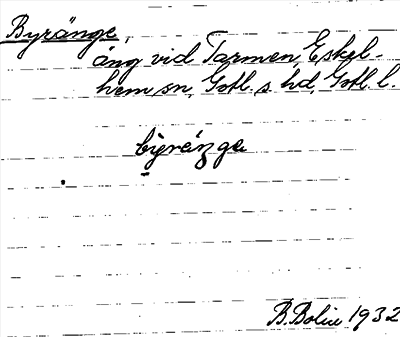 Byränge,
äng vid Tarmen, Eskel-
hem sn, Gotl. s. hd, Gotl. l.
býrèŋgə
B. Bolin 1932